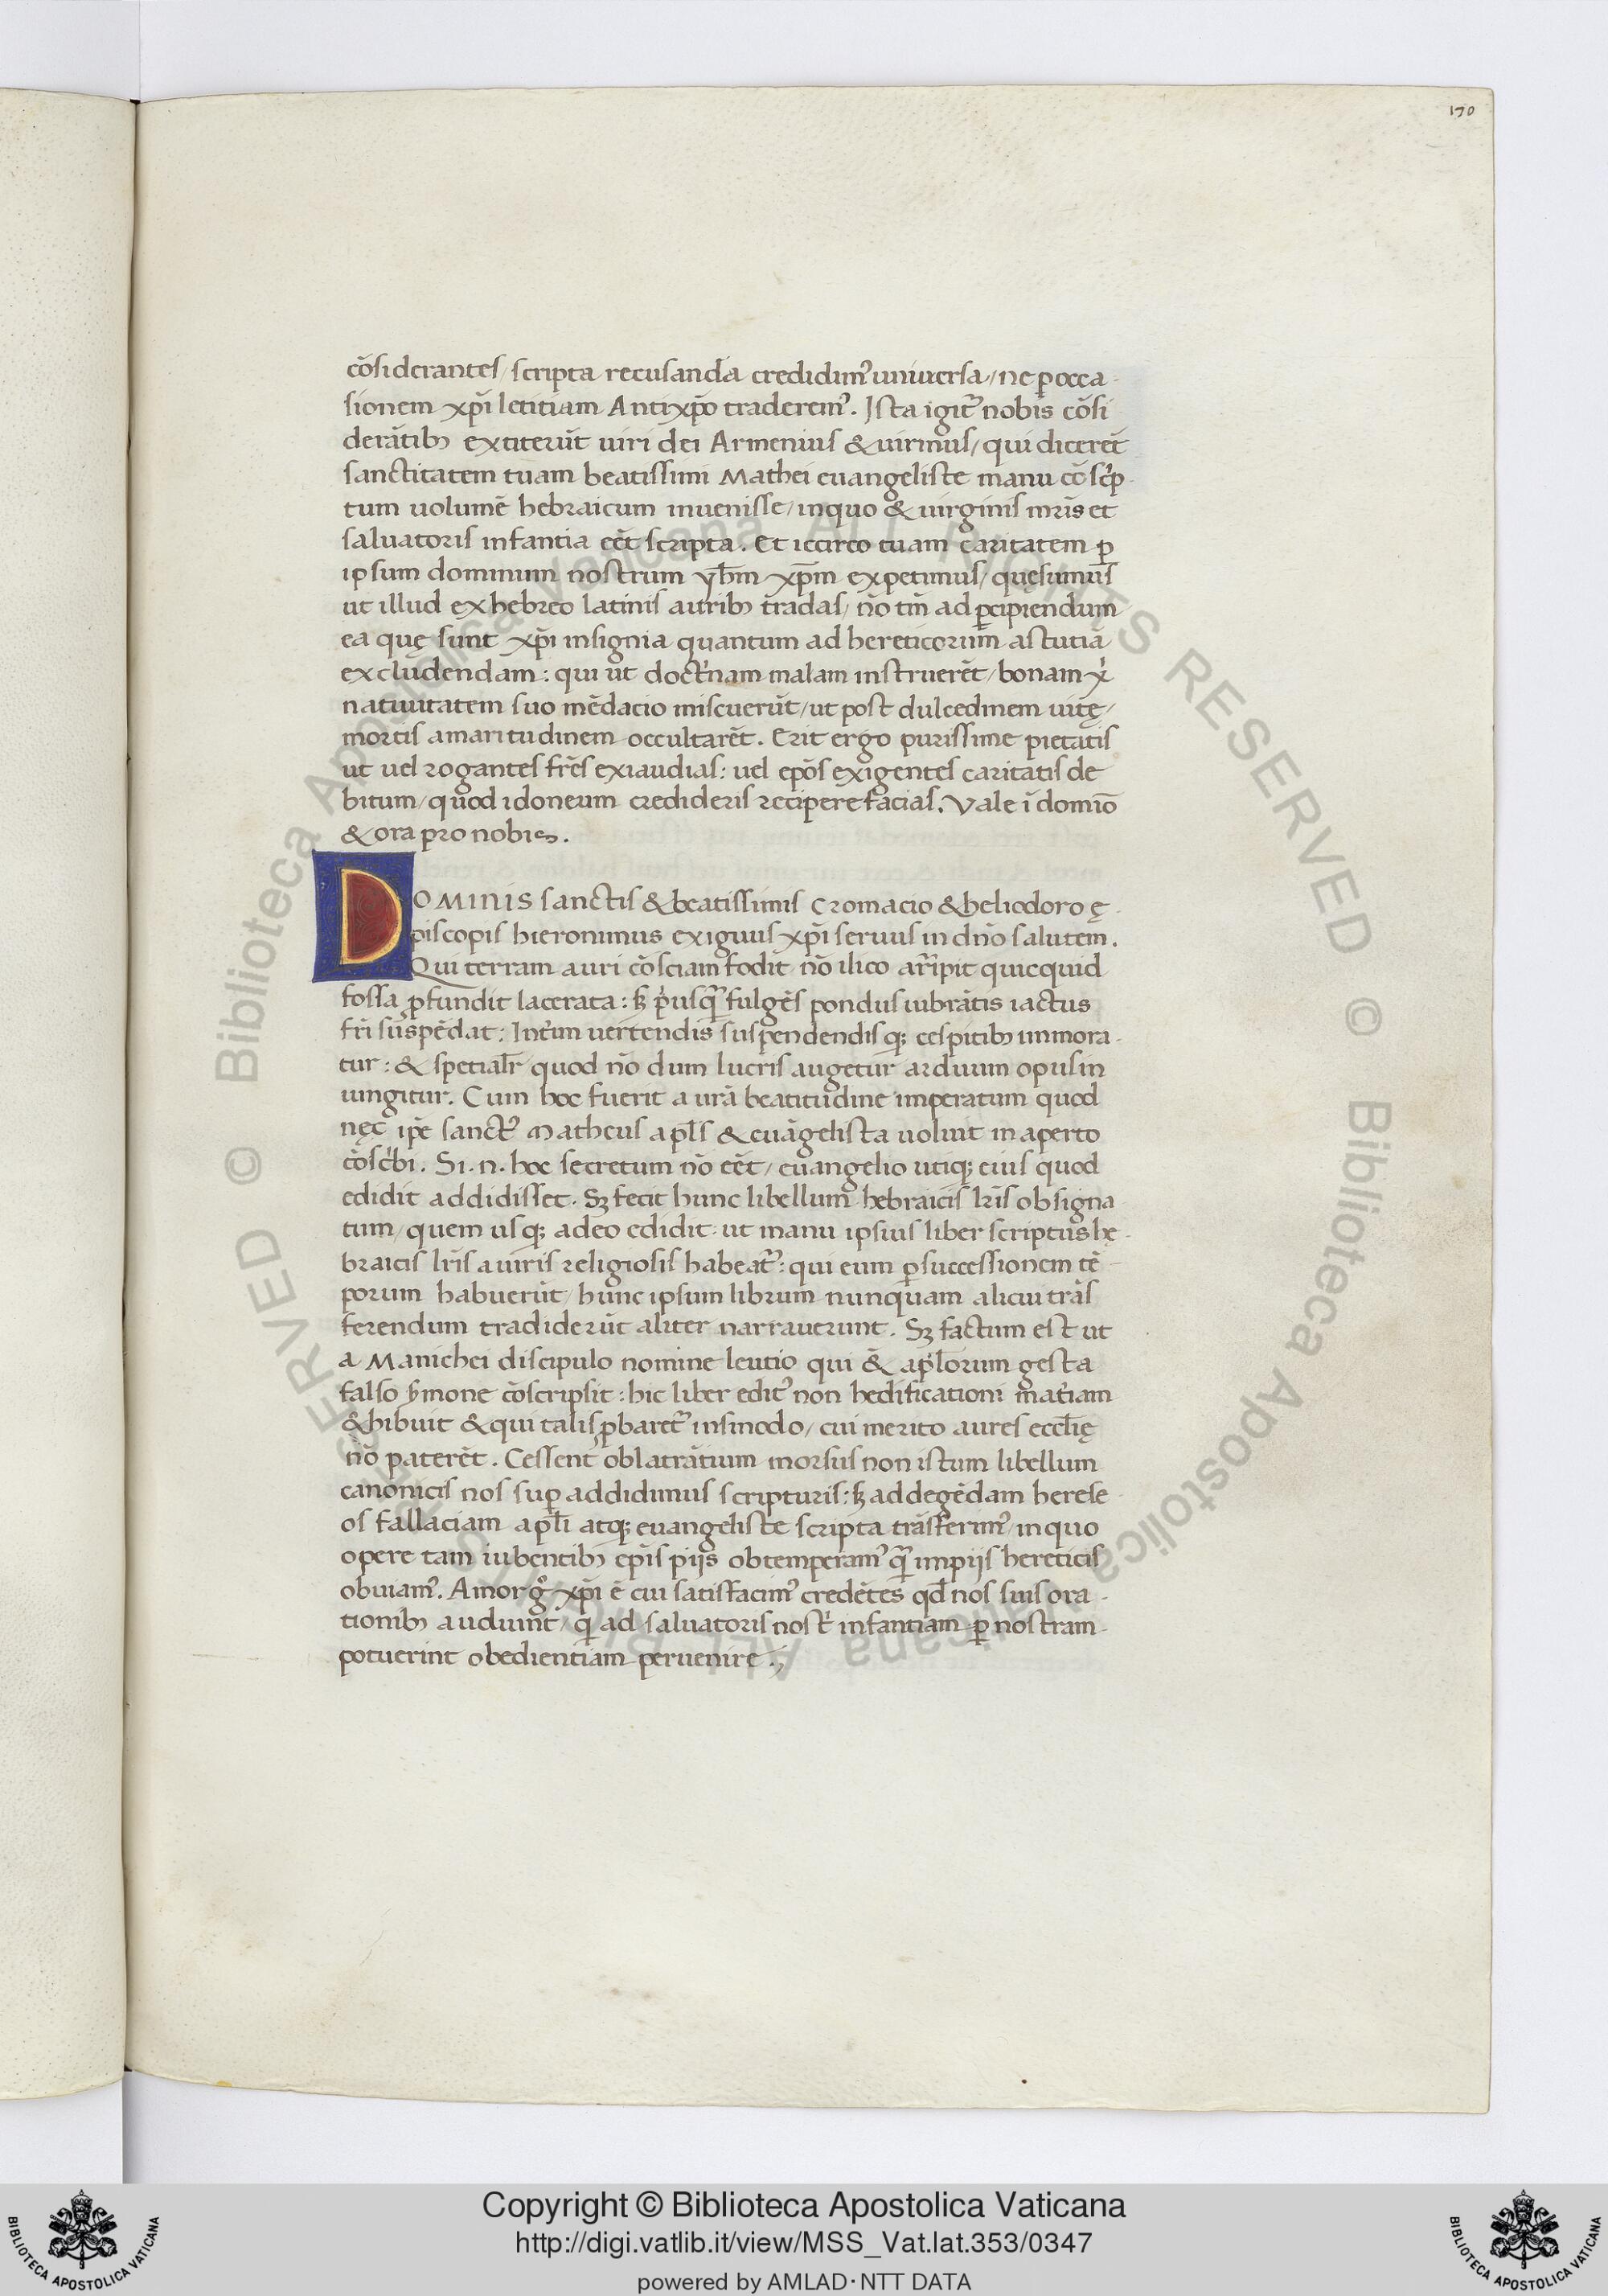 170
cōsiderantes / scripta recusanda credidimꝰ uniuersa / ne ꝑ occa-
sionem xp̄i letitiam Antixp̄o traderemꝰ. Ista igit᷑ nobis cōsi
derātibꝫ extiterūt uiri dei Armenius & uirinus / qui dicerēt
sanctitatem tuam beatissimi Mathei euangeliste manu cōscͥp-
tum uolumē hebraicum inuenisse / in quo & uirginis mr̄is et
saluatoris infantia eēt scripta. Et iccirco tuam caritatem ꝑ
ipsum dominum nostrum yh̄m xp̄m expetimus / quęsumus
ut illud ex hebreo latinis auribꝫ tradas / nō tm̄ ad ꝑcipiendum
ea quę sunt xp̄i insignia quantum ad hereticorum astutiā
excludendam : qui ut doctͥnam malam instruerēt / bonam xͥ
natiuitatem suo mēdacio miscuerūt / ut post dulcedinem uitę /
mortis amaritudinem occultarēt. Erit ergo purissime pietatis
ut uel rogantes fr̄es exiaudias : uel ep̄os exigentes caritatis de
bitum / quod idoneum credideris recipere facias. Vale ī domīo
& ora pro nobis.
DOMINIS sanctis & beatissimis Cromacio & heliodoro ę-
piscopis hieronimus exiguus xp̄i seruus in dn̄o salutem.
Qui terram auri cōsciam fodit nō ilico arͥipit quicquid
fossa ꝓfundit lacerata : sꝫ pͥusqᷓ fulgēs pondus uibrātis iactus
frī suspēdat : Intͥim uertendis suspendendisqꝫ cespitibꝫ immora-
tur : & spetialr̄ quod nō dum lucris augetur arduum opus in
iungitur. Cum hoc fuerit a ur̄a beatitudine imperatum quod
nęc ip̄e sanctꝰ Matheus apl̄s & euāgelista uoluit in aperto
cōscͥbi. Si .n. hoc secretum nō eēt / euangelio utiqꝫ eius quod
edidit addidisset. Sꝫ fecit hunc libellum hebraicis lr̄is obsigna
tum / quem usqꝫ adeo edidit : ut manu ipsius liber scriptus hę-
braicis lr̄is a uiris religiosis habeat᷑ : qui eum ꝑ successionem tē-
porum habuerūt / hunc ipsum librum nunquam alicui trās
ferendum tradiderūt aliter narrauerunt. Sꝫ factum est ut
a Manichei discipulo nomine leutio qui & apl̄orum gesta
falso s̄mone cōscripsit : hic liber editꝰ non hedificationi matͥiam
&hibuit & qui talis ꝓbaret᷑ in sinodo / cui merito aures eccl̄ię
nō paterēt. Cessent᷑ oblatrātium morsus non istum libellum
canonicis nos suꝑaddidimus scripturis : sꝫ ad degēdam herese-
os fallaciam apl̄i atqꝫ euangeliste scripta trāsferimꝰ / in quo
opere tam iubentibꝫ ep̄is pijs obtemperamꝰ qᷓ impijs hereticis
obuiamꝰ. Amor gͦ xp̄i ē cui satisfacimꝰ credētes qd̄ nos suis ora-
tionibꝫ adiuuint / qͥ ad saluatoris nostͥ infantiam ꝑ nostram
potuerint obedientiam peruenire.;
© Biblioteca Apostolica Vaticana ALL RIGHTS RESERVED
© Biblioteca Apostolica Vaticana ALL RIGHTS RESERVED
Copyright © Biblioteca Apostolica Vaticana
http://digi.vatlib.it/view/MSS_Vat.lat.353/0347
powered by AMLAD·NTT DATA
BIBLIOTECA APOSTOLICA VATICANA
BIBLIOTECA APOSTOLICA VATICANA